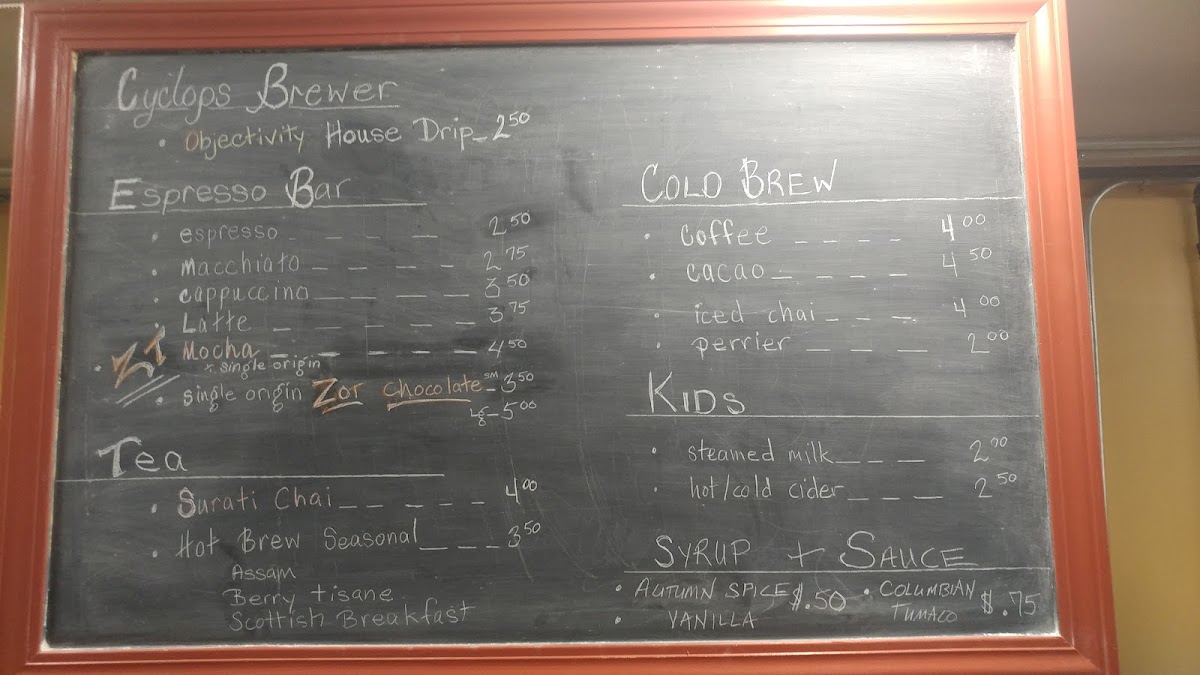 Cyclops Brewer
• Objectivity House Drip_ 2 50
Espresso Bar
• espresso _ _ _ _ 2 50
• Macchiato _ _ _ _ 2 75
• cappuccino _ _ _ _ 3 50
• Latte _ _ _ _ _ _ 3 75
• ZT Mocha _ _ _ _ _ 4 50
+ single origin
• single origin Zor Chocolate SM _ 3 50
lg _ 5 00
Tea
• Surati Chai _ _ _ _ _ 4 00
• Hot Brew Seasonal _ _ _ 3 50
Assam
Berry tisane
Scottish Breakfast
COLD BREW
• coffee _ _ _ _ 4 00
• cacao _ _ _ _ 4 50
• iced chai _ _ _ 4 00
• perrier _ _ _ _ 2 00
KIDS
• steamed milk _ _ _ 2 00
• hot/cold cider _ _ _ 2 50
SYRUP + SAUCE
• AUTUMN SPICE $.50
• VANILLA
• COLUMBIAN $.75
TUMACO